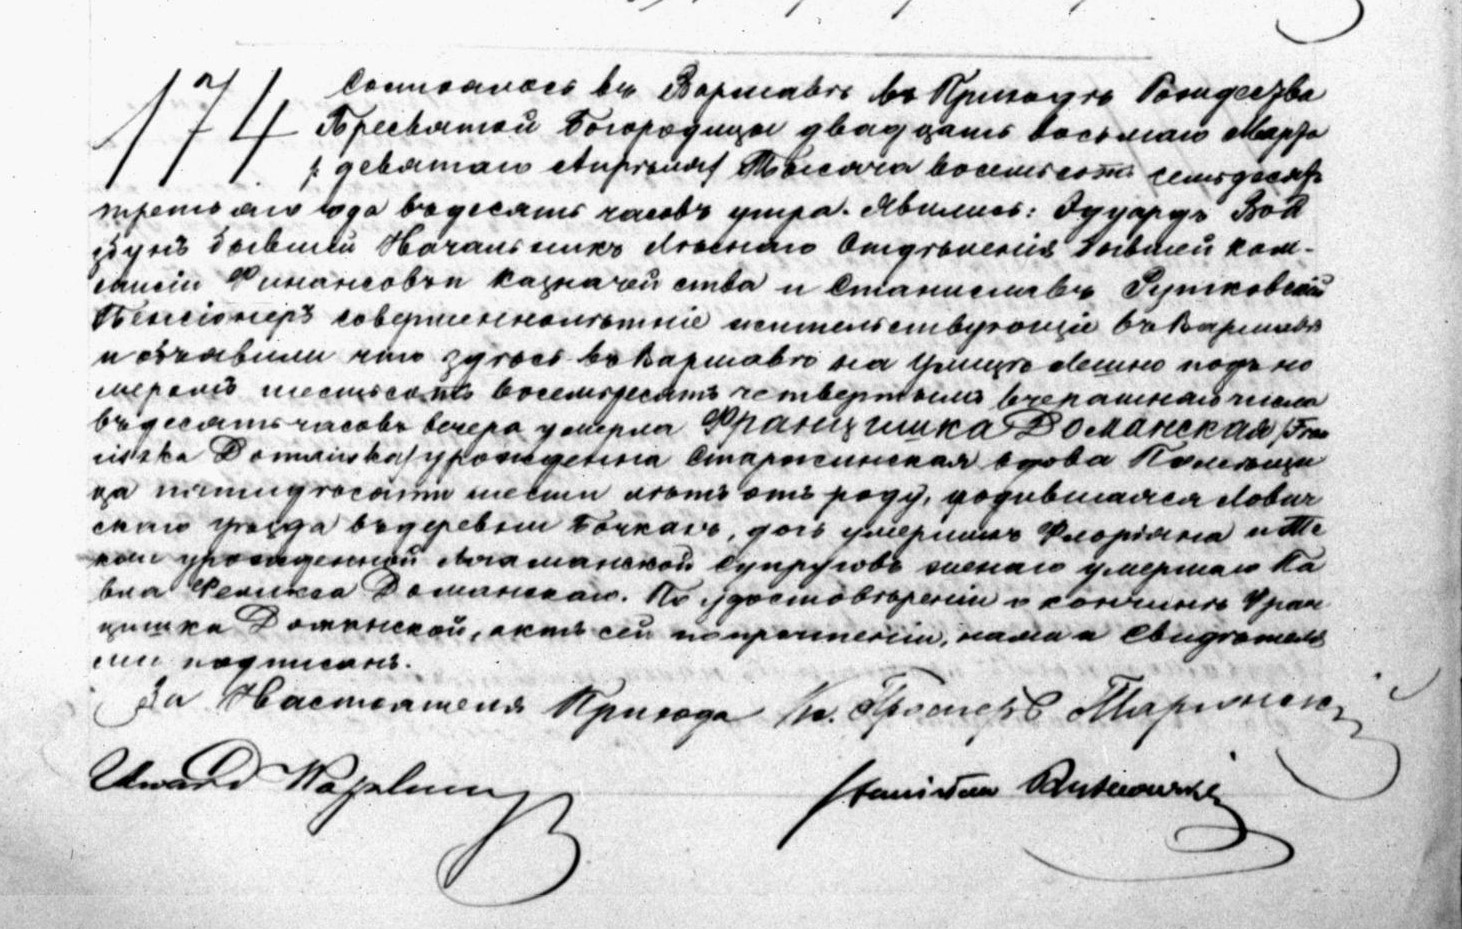 174 Состоялось въ Варшавѣ въ Приходѣ Рождества
Пресвятой Богородицы двадцать восьмаго Марта
/: девятаго Апрѣля/ Тысяча восемьсотъ семьдесятъ
третьяго года въ десять часовъ утра. Явились: Эдуардъ
бывшій Начальникъ Лѣснаго Отдѣленія бывшей ком-
мисіи Финансовъ и Казначейства и Станиславъ Рутковскій
Пенсіонеръ совершеннолѣтніе жительствующіе въ Варшавѣ
и объявили что здѣсь въ Варшавѣ на улицѣ Лешно подъ но
меромъ шестьсотъ восемьдесятъ четвертымъ вчерашняго числа
въ десять часовъ вечера умерла Францишка Доманская /Fran
ciszka Domańska/ урожденна Старжинская вдова Помѣщи
ца пятидѣсяти шести лѣтъ отъ роду, родившаяся Лович
скаго уѣзда въ деревни Бочкахъ, дочь умершихъ Флоріана и Те
кли урожденной супруговъ женаго умершаго Па
вла Феликса Доманскаго. По удостовѣреніи о кончинѣ Фран
цишка Доманской, актъ сей по прочтеніи, нами и Свидѣтеля
ми подписанъ.
За Настоятеля Прихода Кс.
Edward
Stanisław Rutkowski